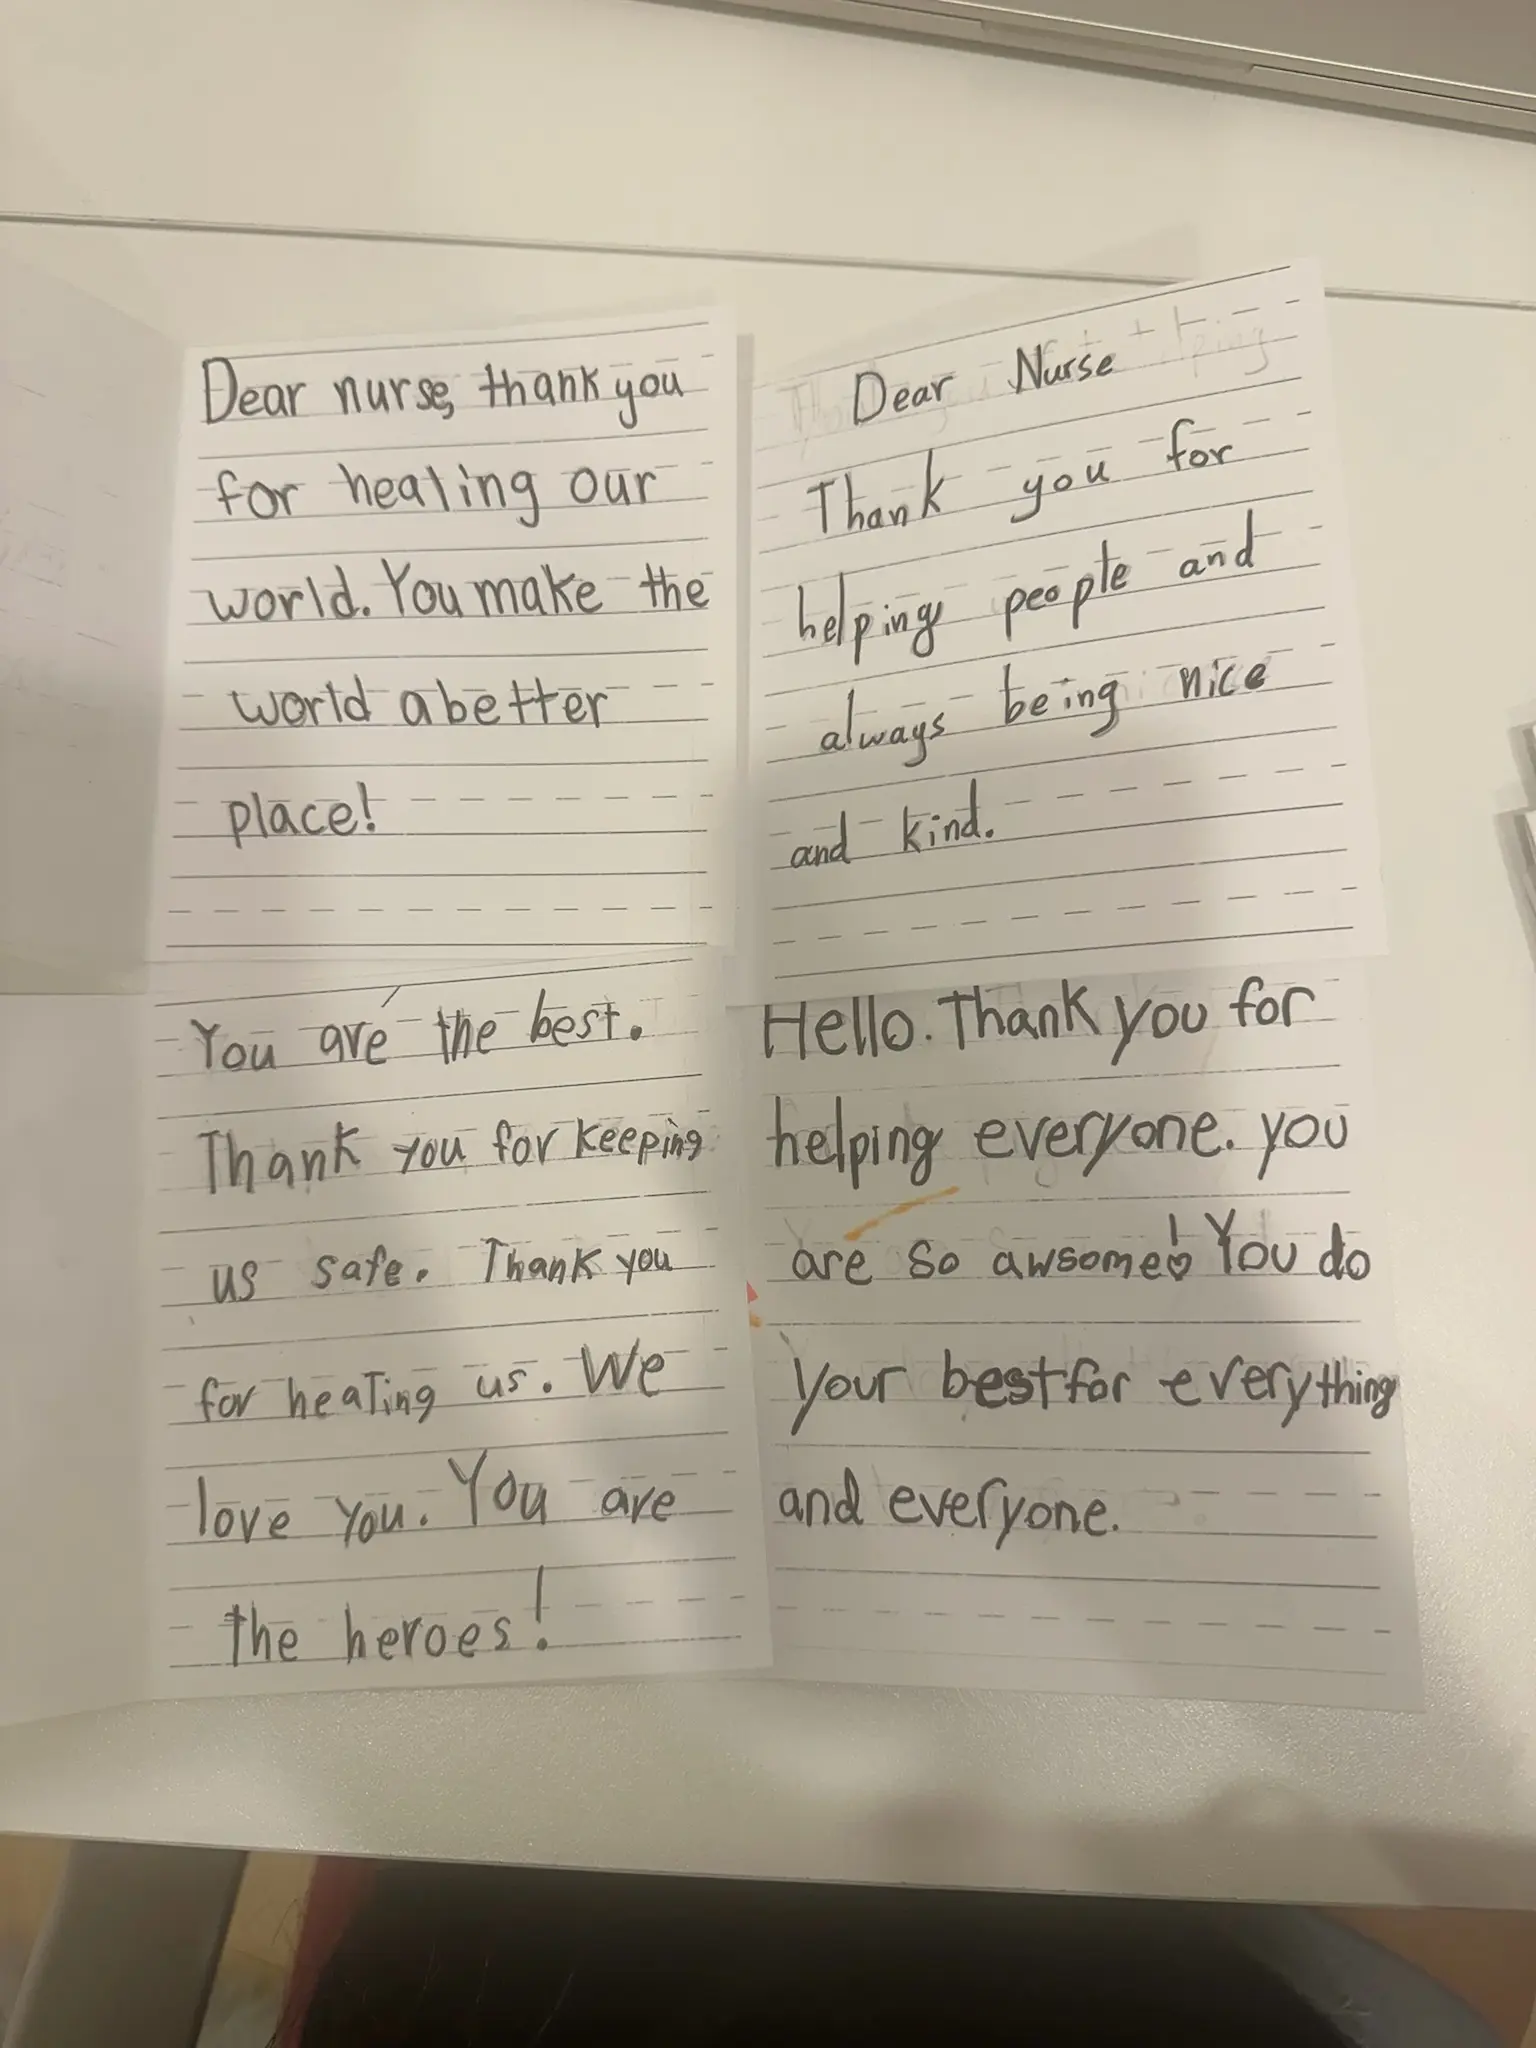 Dear nurse, thank you
for healing our
world. You make the
world a better
place!
Dear Nurse
Thank you for
helping people and
always being nice
and kind.
You are the best.
Thank you for keeping
us safe. Thank you
for healing us. We
love you. You are
the heroes!
Hello. Thank you for
helping everyone. you
are so awsome! You do
your best for everything
and everyone.